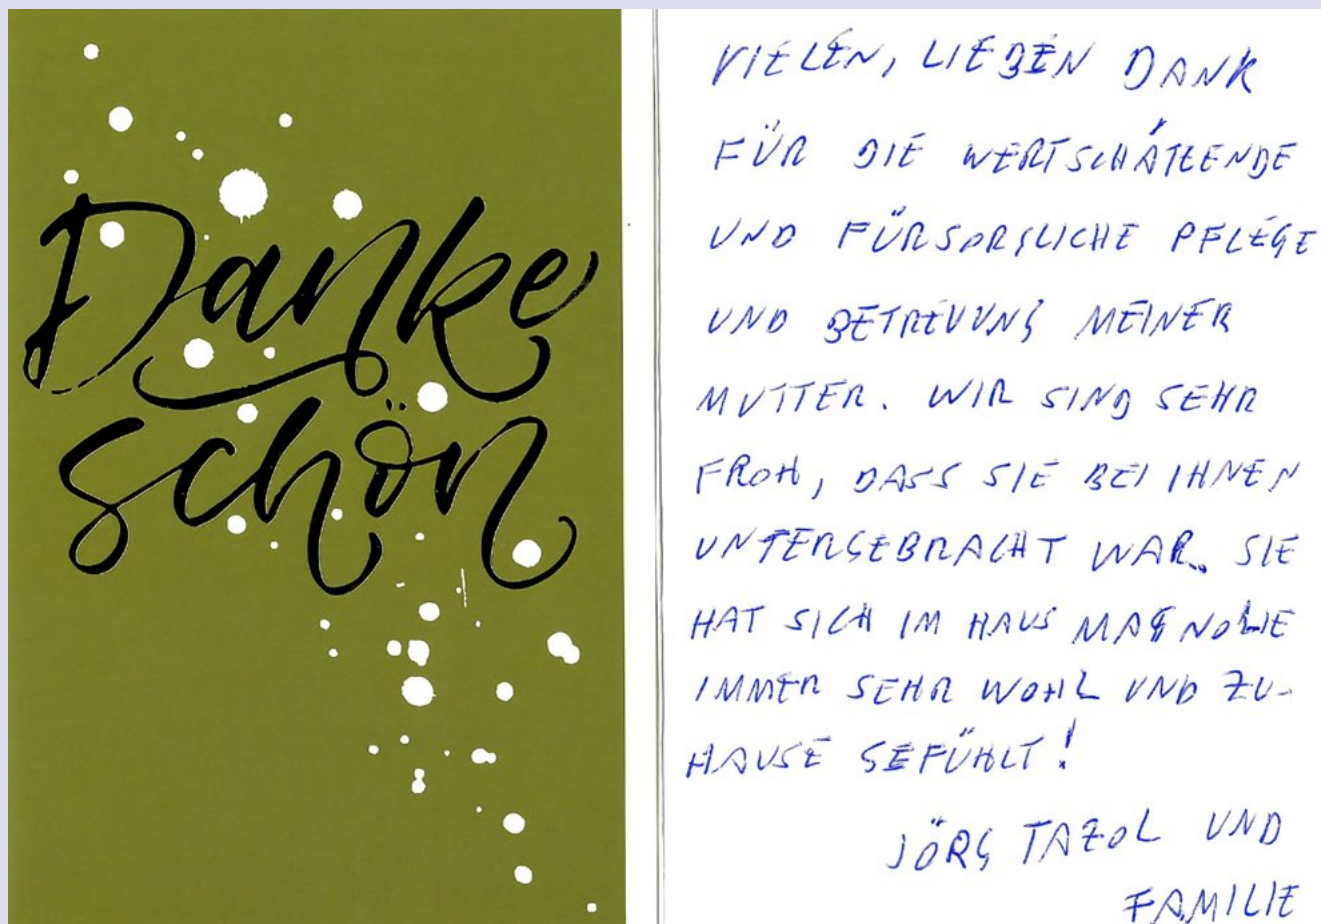 Danke
schön
VIELEN, LIEBEN DANK
FÜR DIE WERTSCHÄTZENDE
UND FÜRSORGLICHE PFLEGE
UND BETREUUNG MEINER
MUTTER. WIR SIND SEHR
FROH, DASS SIE BEI IHNEN
UNTERGEBRACHT WAR. SIE
HAT SICH IM HAUS MAGNOLIE
IMMER SEHR WOHL UND ZU-
HAUSE GEFÜHLT!
JÖRG TAZOL UND
FAMILIE